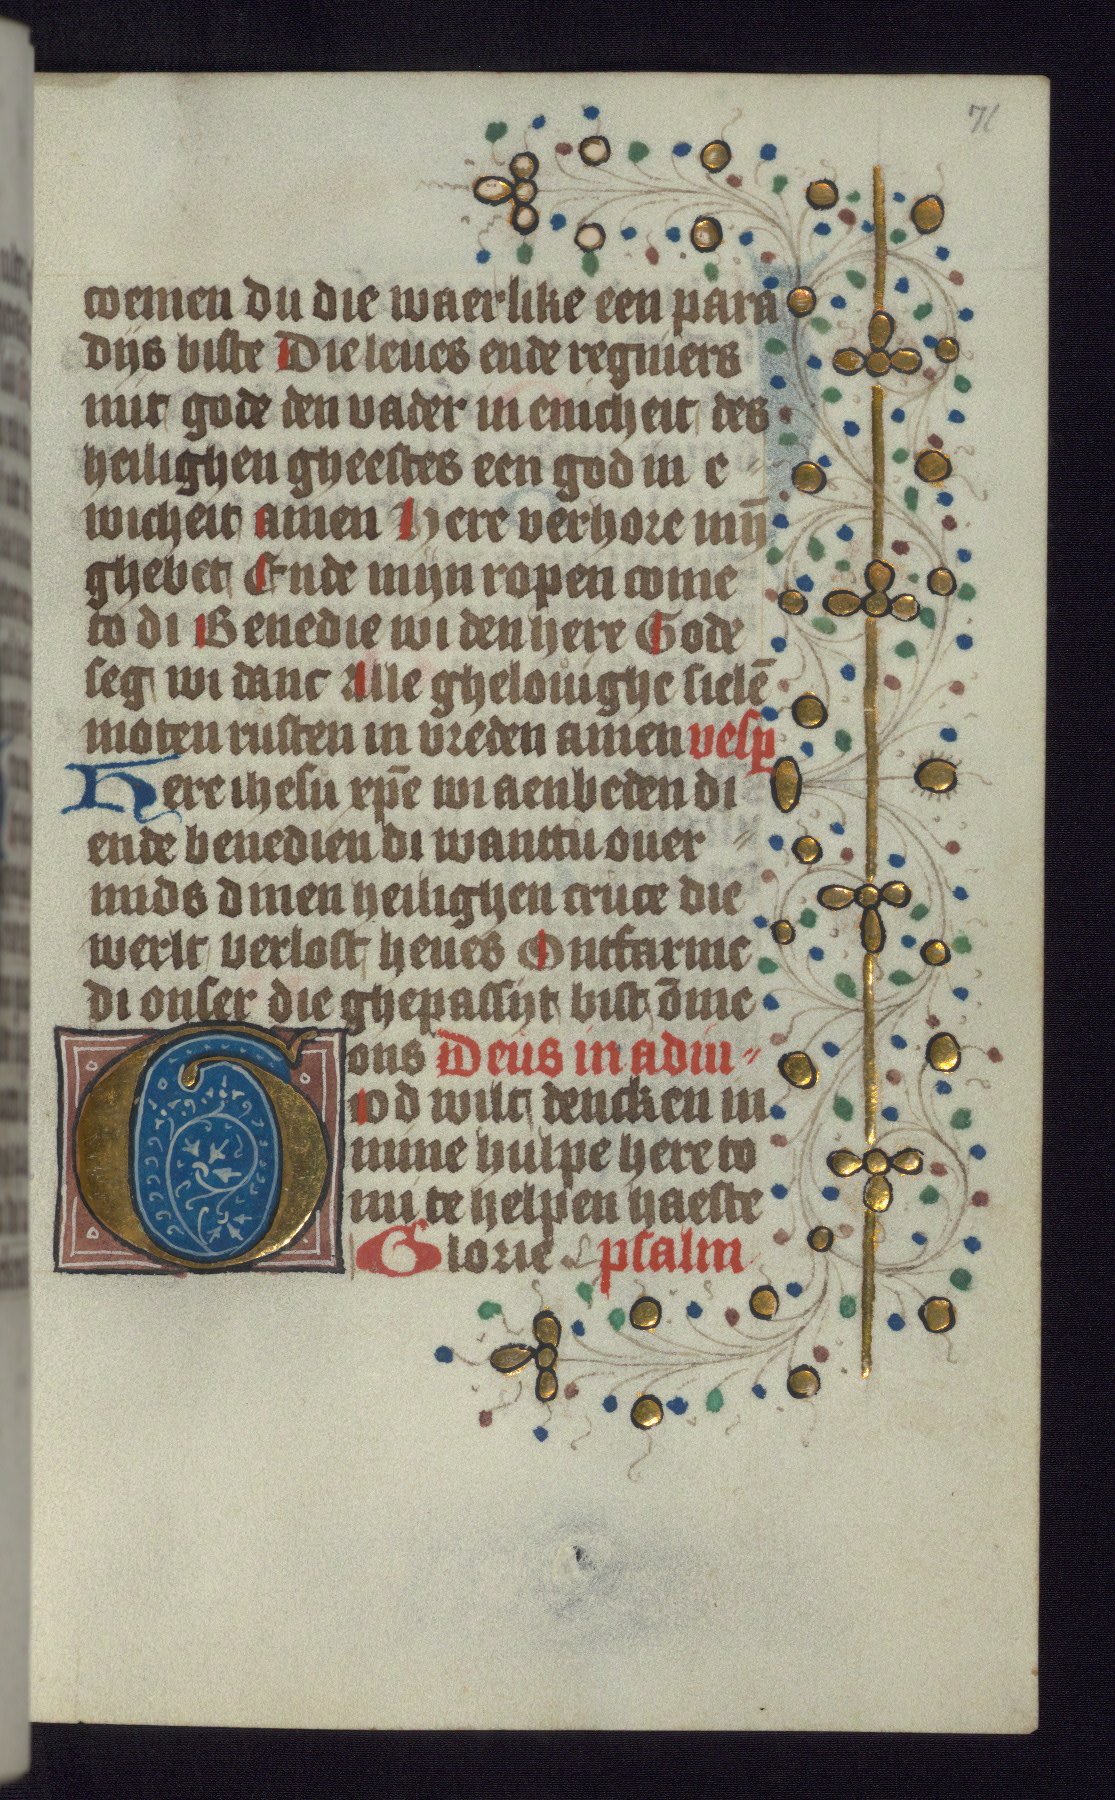 71
comen du die waerlike een para
dijs biste Die leues ende regniers
mit gode den vader in enicheit des
heilighen gheestes een god in e〃
wicheit amen Here verhore mӯ
ghebet Ende mijn ropen come
to di Benedie wi den here Gode
seg wi danc Alle ghelouighe sielē
moten rusten in vreden amen vesp
Here ihesu xp̄e wi aenbeden di
ende benedien di wanttu ouer〃
mids dinen heilighen cruce die
werlt verlost heues Ontfarme
di onser die ghepassijt bist om̄e
ons Deus in adiu〃
God wilt dencken in
mine hulpe here to
mi te helpen haeste
Glorie psalm